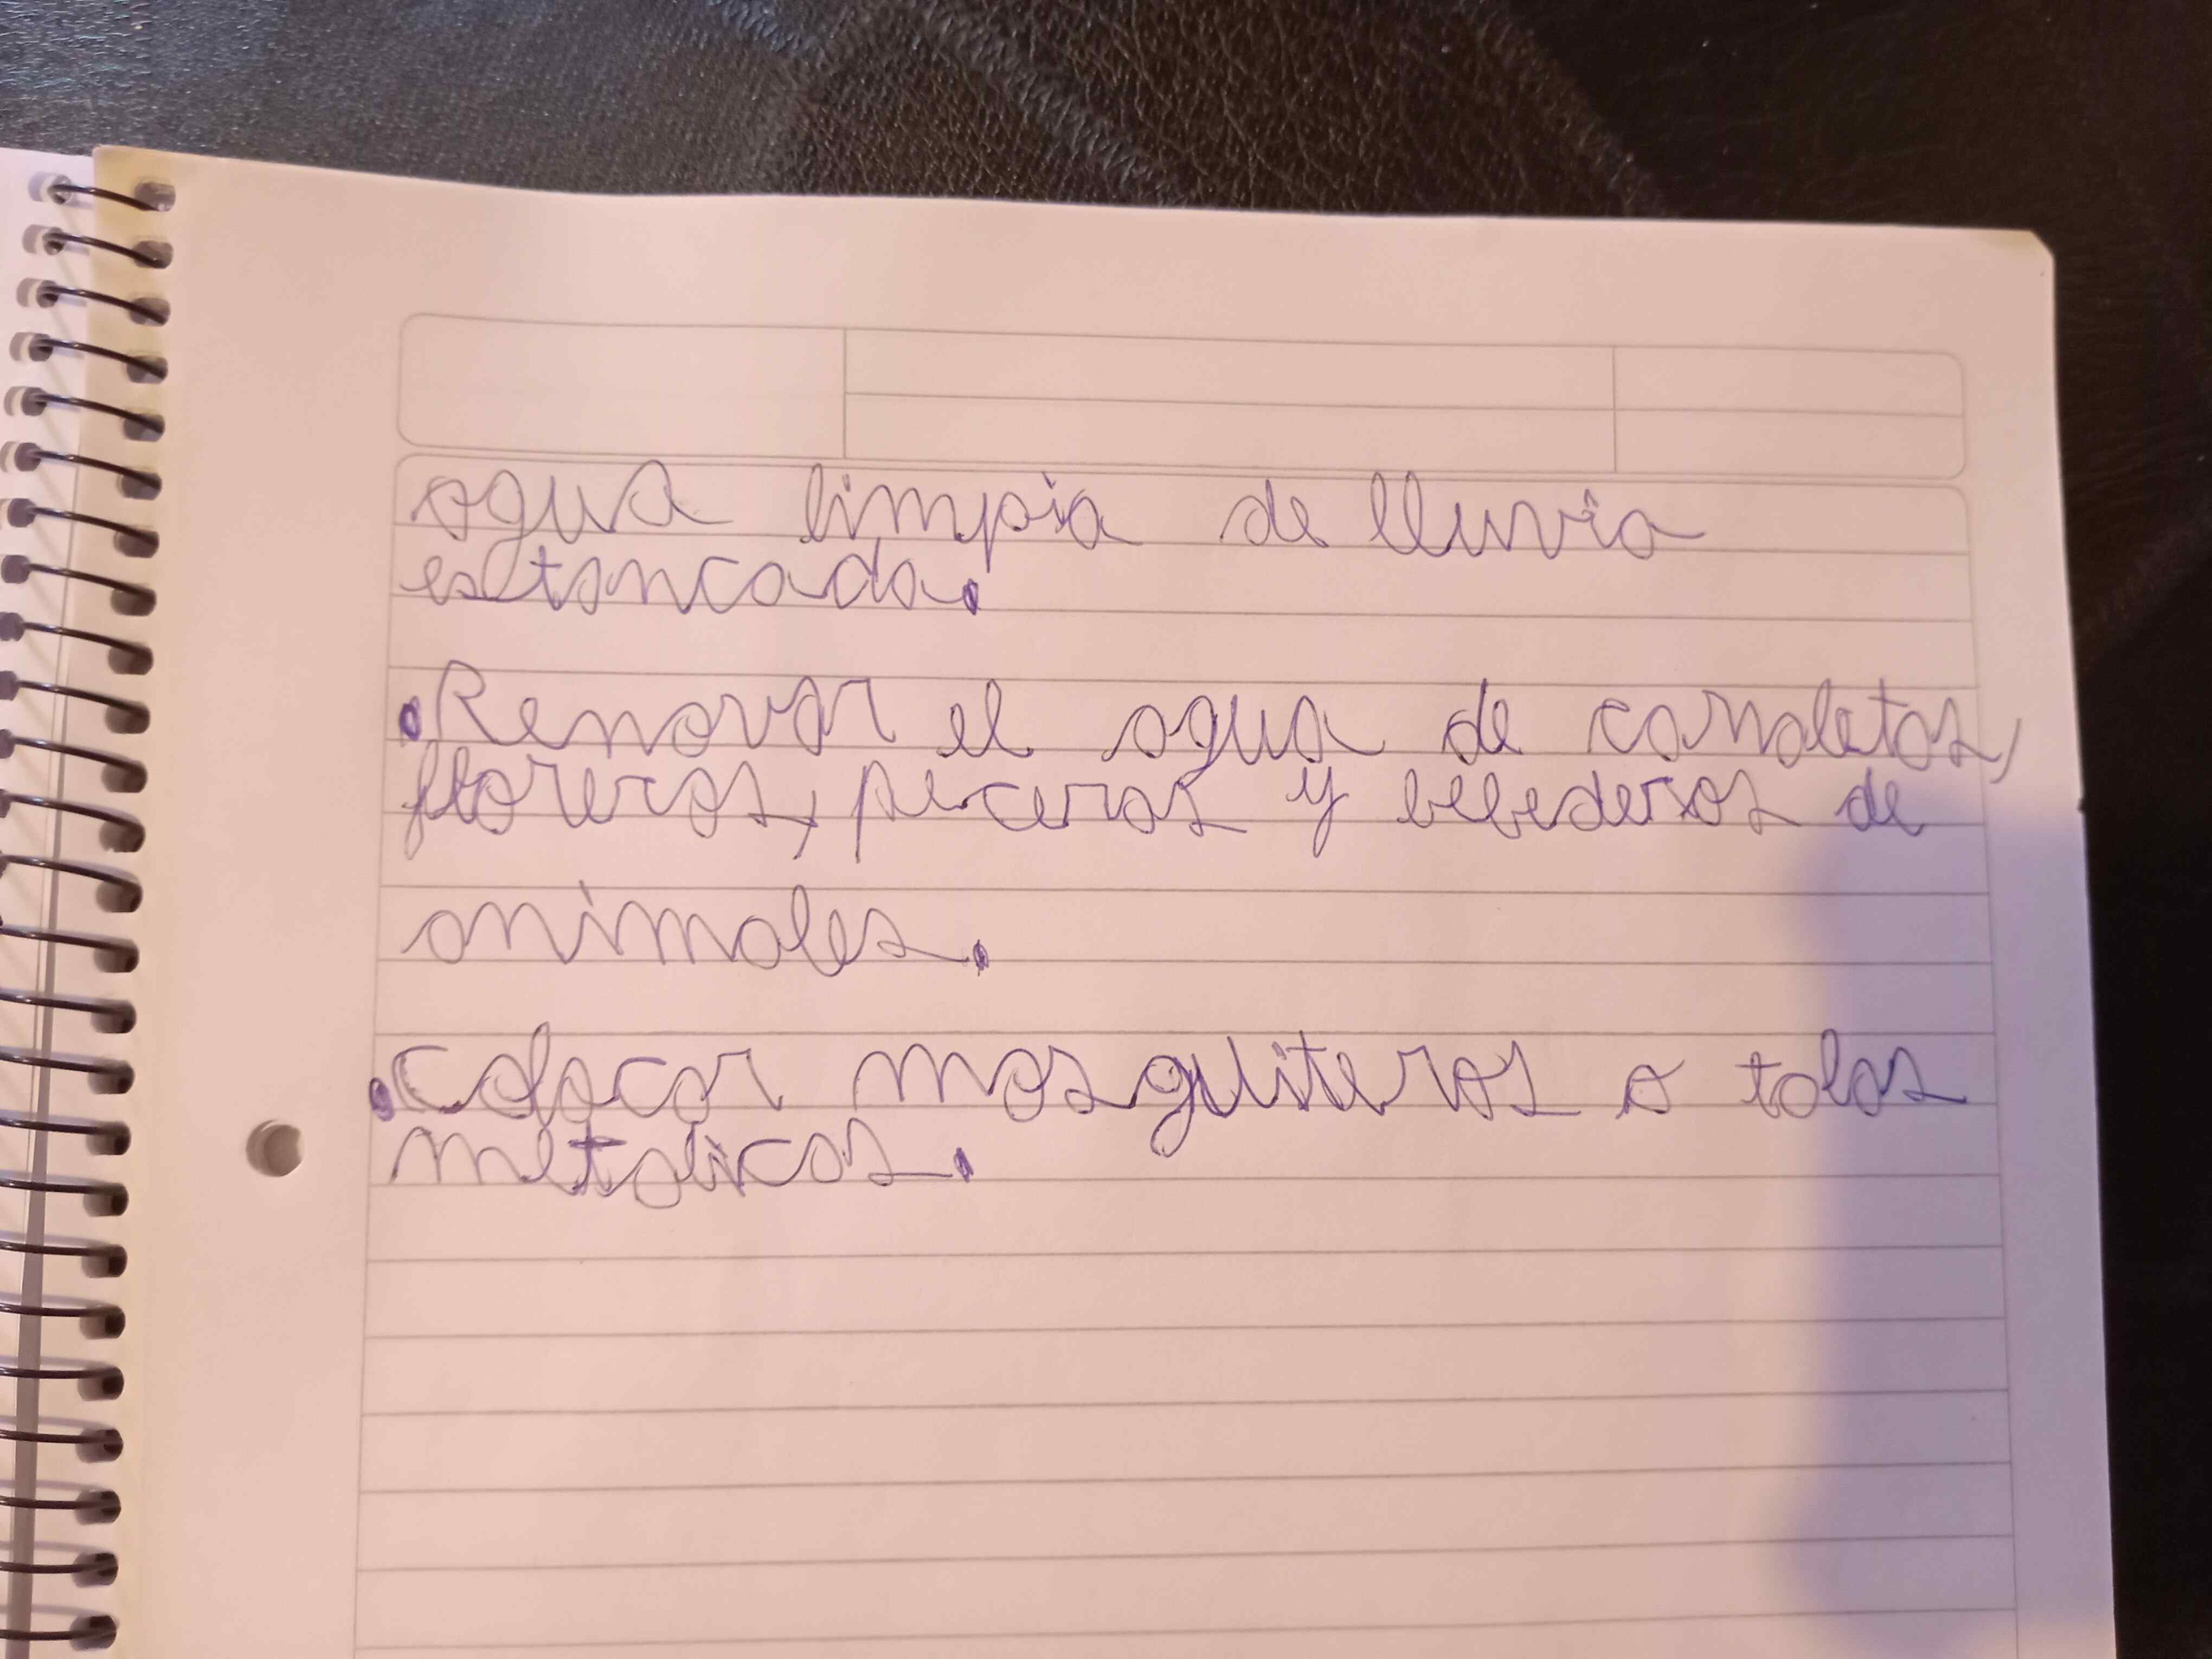 agua limpia de lluvia
estancada.
•Renovar el agua de canaletas,
floreros, peceras y bebederos de
animales.
•Colocar mosquiteros o telas
metalicas.